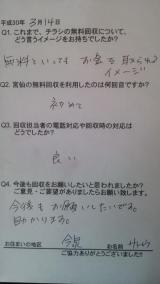 平成30年 3月14日
Q1. これまで、チラシの無料回収について、
どう言うイメージをお持ちでしたか?
無料といっても お金を取られる
イメージ
Q2. 宮仙の無料回収を利用したのは何回目ですか?
初めて
Q3. 回収担当者の電話対応や回収時の対応は
どうでしたか?
良い
Q4. 今後も回収をお願いしたいと思われましたか?
ご意見・ご要望がありましたらお願い致します。
今後もお願いしたいです。
助かります。
お住まいの地区 今泉 お名前
ご協力ありがとうございました!!